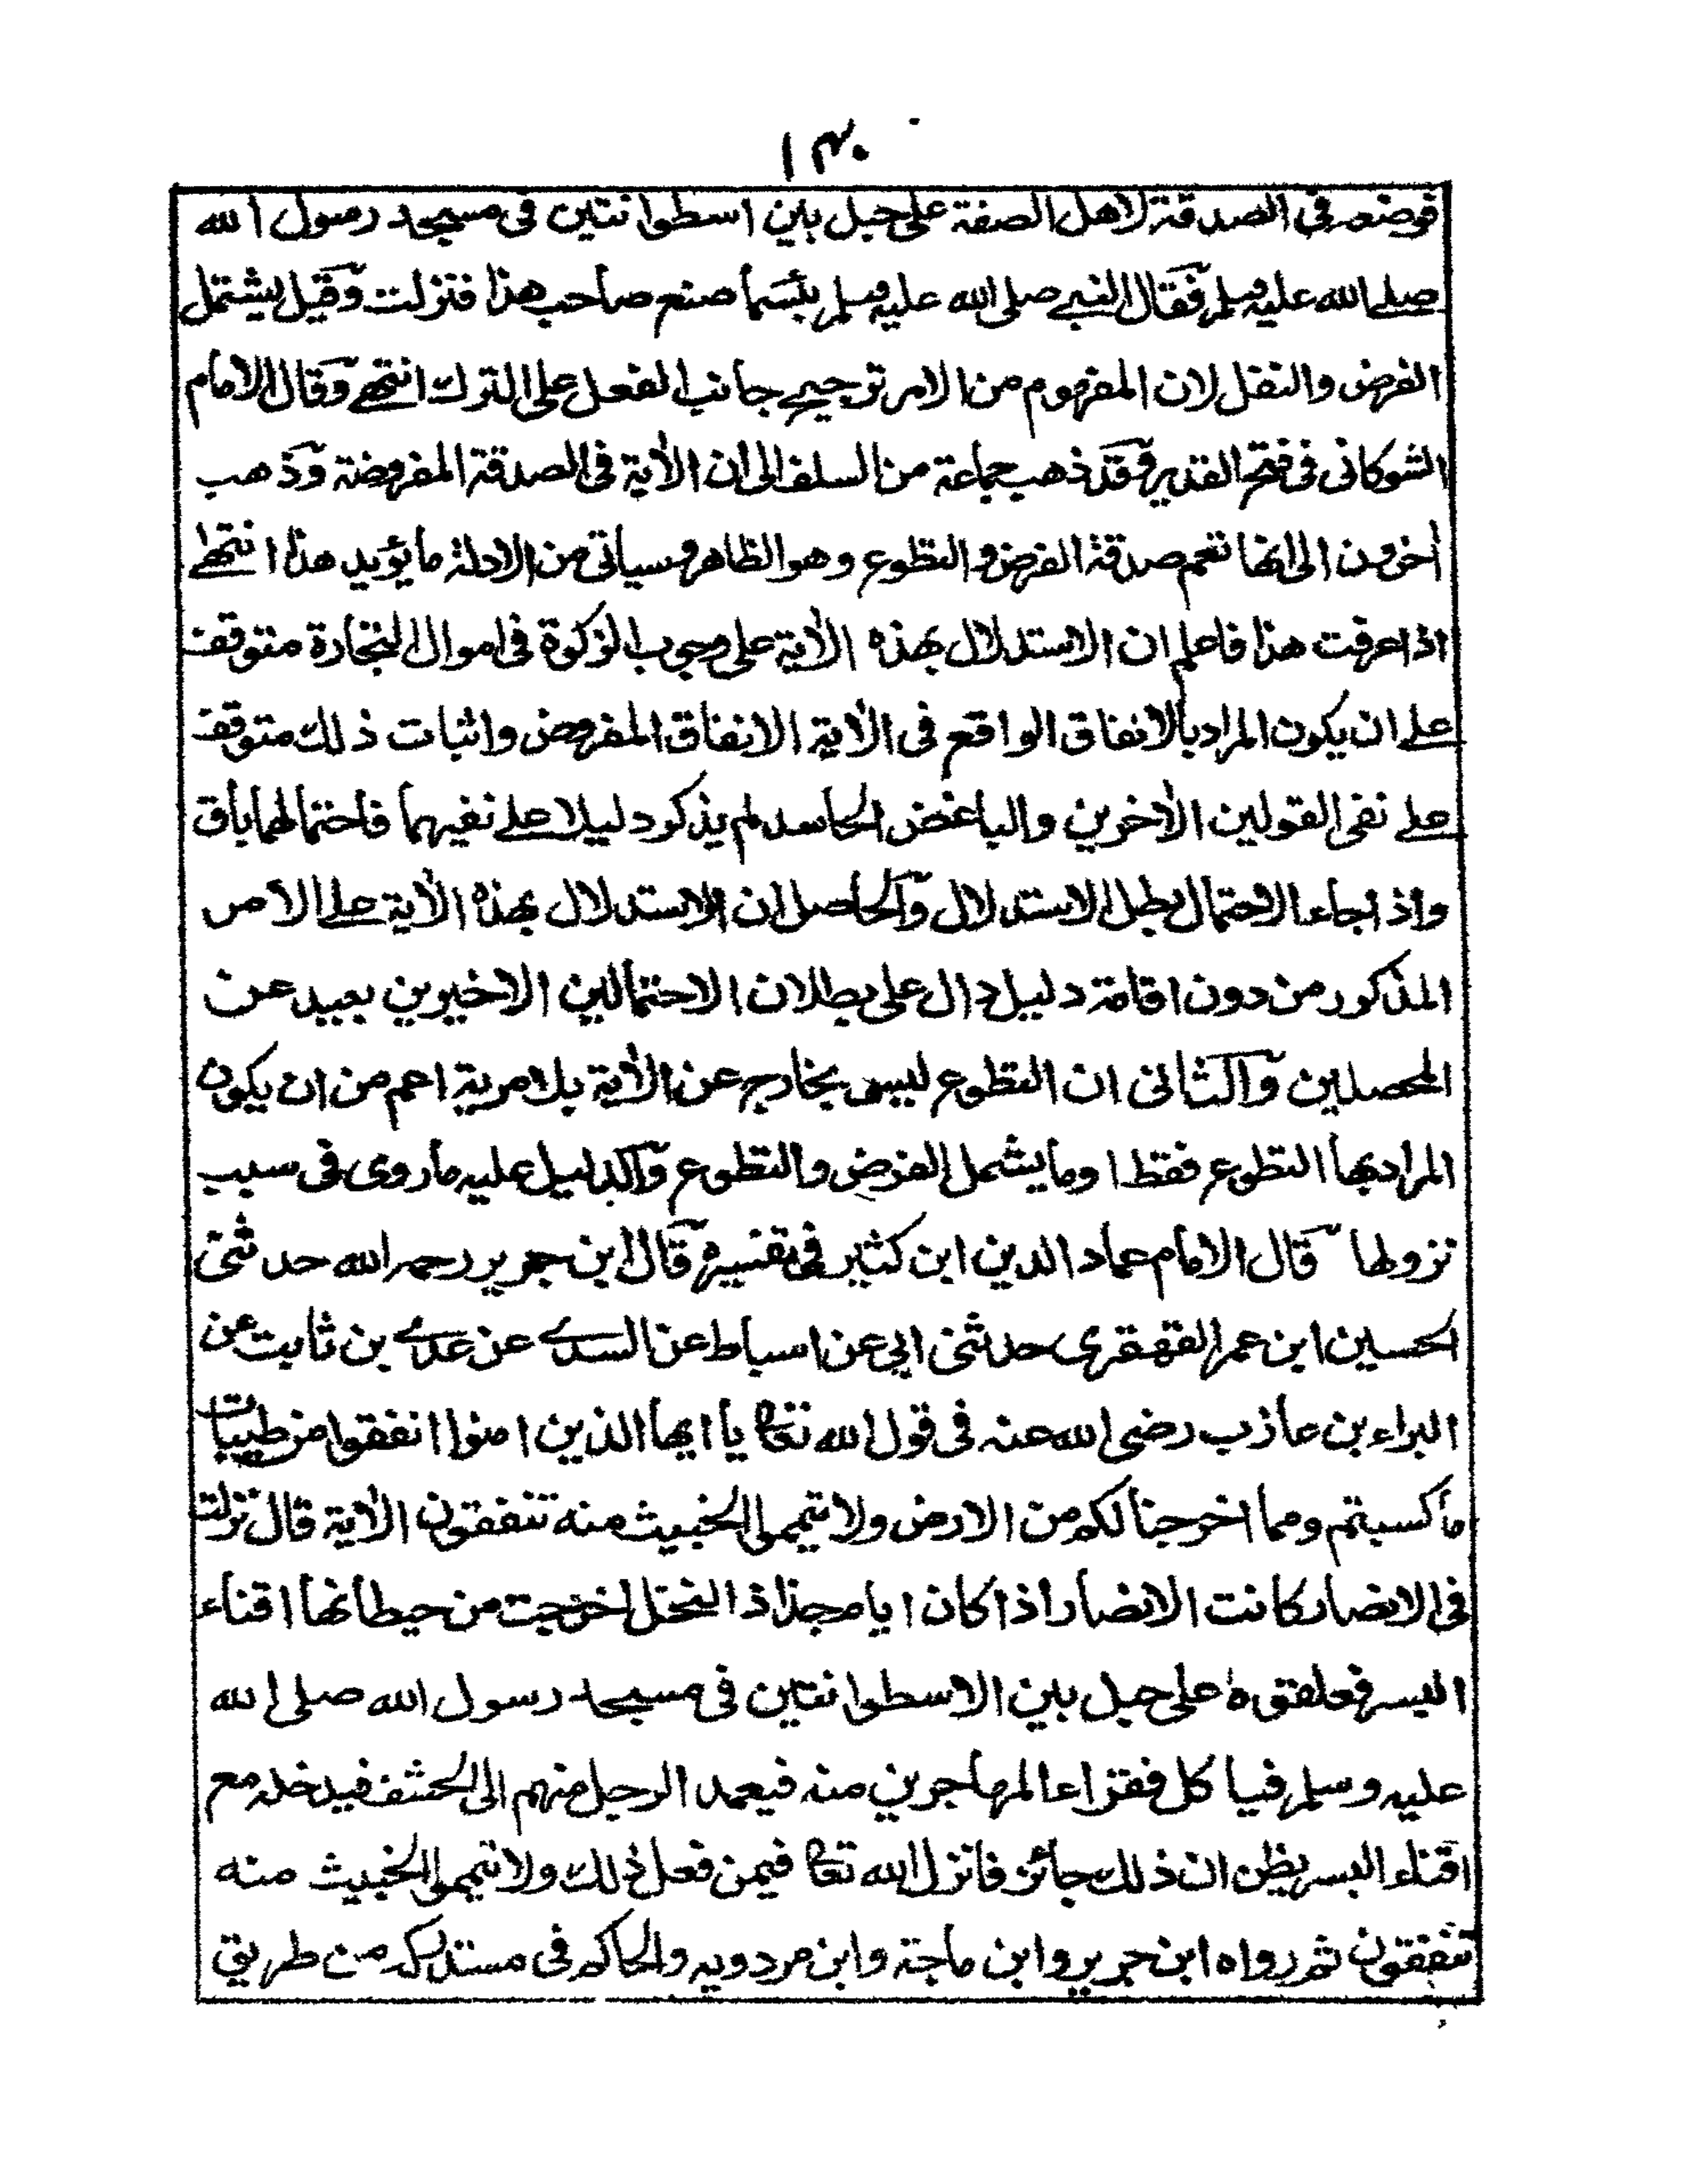 ١٤٠
فوضعه فى الصدقة لاهل الصفة على حبل بين اسطوانتين فى مسجد رسول الله
صلے الله عليه وسلم فقال النبے صلى الله عليه وسلم بئسما صنع صاحب هذا فنزلت وقيل يشتمل
الفرض والنفل لان المفهوم من الامر ترجيح جانب الفعل على الترك انتهے وقال الامام
الشوكانى فى فتح القدير وقد ذهب جماعة من السلف الى ان الاٰية فى الصدقة المفروضة وذهب
اٰخرون الى انها تعم صدقة الفرض والتطوع وهو الظاهر وسياتى من الادلة ما يؤيد هذا انتهےٰ
اذا عرفت هذا فاعلم ان الاستدلال بهذه الاٰية على وجوب الزكوة فى اموال التجارة متوقف
علے ان يكون المراد بالانفاق الواقع فى الاٰية الانفاق المفروض واثبات ذلك متوقف
علے نفى القولين الاٰخرين والباغض الحاسد لم يذكر دليلا علے نفيهما فاحتمالهما باق
واذ اجاء الاحتمال بطل الاستدلال والحاصل ان الاستدلال بهذه الاٰية علے الامر
المذكور من دون اقامة دليل دال على بطلان الاحتمالين الاخيرين بعيد عن
المحصلين والثانى ان التطوع ليس بخارج عن الاٰية بلا مرية اعم من ان يكون
المراد بها التطوع فقط او ما يشمل الفرض والتطوع والدليل عليه ما روى فى سبب
نزولها قال الامام عماد الدين ابن كثير فى تفسيره قال ابن جرير رحمه الله حدثنى
الحسين ابن عمر القهقرى حدثنى ابى عن اسباط عن السدے عن عدے بن ثابت عن
البراء بن عاذب رضى الله عنه فى قول الله تعالى يا ايها الذين امنوا انفقوا من طيبات
ما كسبتم ومما اخرجنا لكم من الارض ولا تيمموا الخبيث منه تنفقون الاٰية قال نزلت
فى الانصار كانت الانصار اذا كان ايام جذاذ النخل اخرجت من حيطانها اقناء
البسر فعلقوه على حبل بين الاسطوانتين فى مسجد رسول الله صلى الله
عليه وسلم فياكل فقراء المهاجرين منه فيعمد الرجل منهم الى الحشف فيدخله مع
اقناء البسر يظن ان ذلك جائز فانزل الله تعالى فيمن فعل ذلك ولا تيمموا الخبيث منه
تنفقون ثم رواه ابن جرير وابن ماجة وابن مردويه والحاكم فى مستدركه من طريق